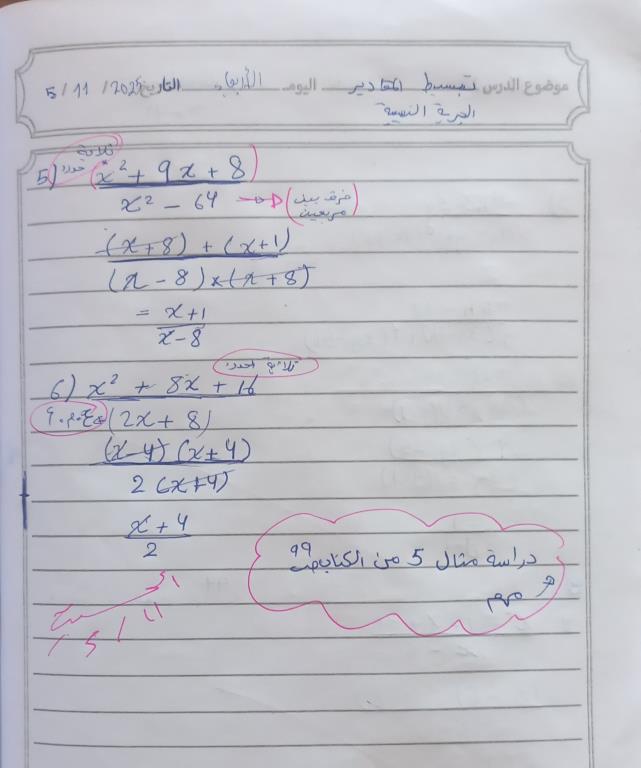 موضوع الدرس تبسيط المقادير اليوم الأربعاء التاريخ 5/11/2025
الجبرية النسبية
5) (x² + 9x + 8) ثلاثية حدود
x² - 64 → (فرق بين مربعين)
(x+8) + (x+1)
(x - 8) × (x + 8)
= x+1
x-8
ثلاثية الحدود
6) x² + 8x + 16
(2x + 8)
(x-4) (x+4)
2 (x+4)
x + 4
2
دراسة مثال 5 من الكتاب ص 99
مهم
5/11